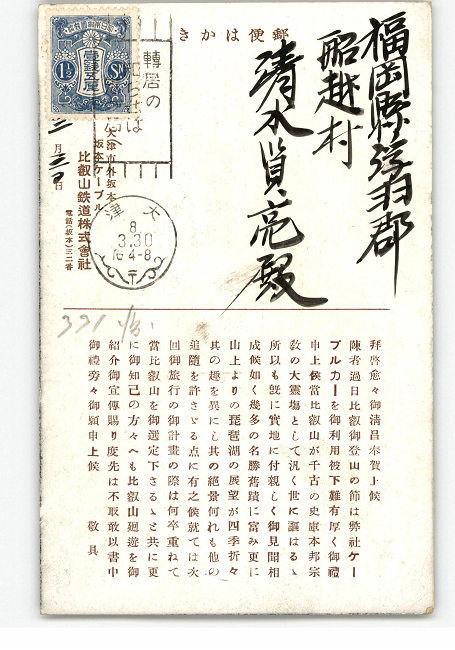 郵便はかき
福岡縣浮羽郡
船越村
清水貞亮殿
轉居の
1½ Sn
大津市外坂本
坂本ケーブル
比叡山鉄道株式會社
電話(坂本)三二番
月
日
大津
8
3.30
后4-8
〒
331
拜啓愈々御清昌奉賀上候
陳者過日比叡御登山の節は弊社ケー
ブルカーを御利用被下難有厚く御禮
申上候當比叡山が千古の史庫本邦宗
敎の大靈塲として汎く世に謳はるゝ
所以も旣に實地に付親しく御見聞相
成候如く幾多の名勝舊蹟に富み更に
山上よりの琵琶湖の展望が四季折々
其の趣を異にし其の絕景何れも他の
追隨を許さゞる点に有之候就ては次
回御旅行の御計畫の際は何卒重ねて
當比叡山を御選定下さるゝと共に更
に御知己の方々へも比叡山廻遊を御
紹介御宣傳賜り度先は不取敢以書中
御禮旁々御願申上候　敬具